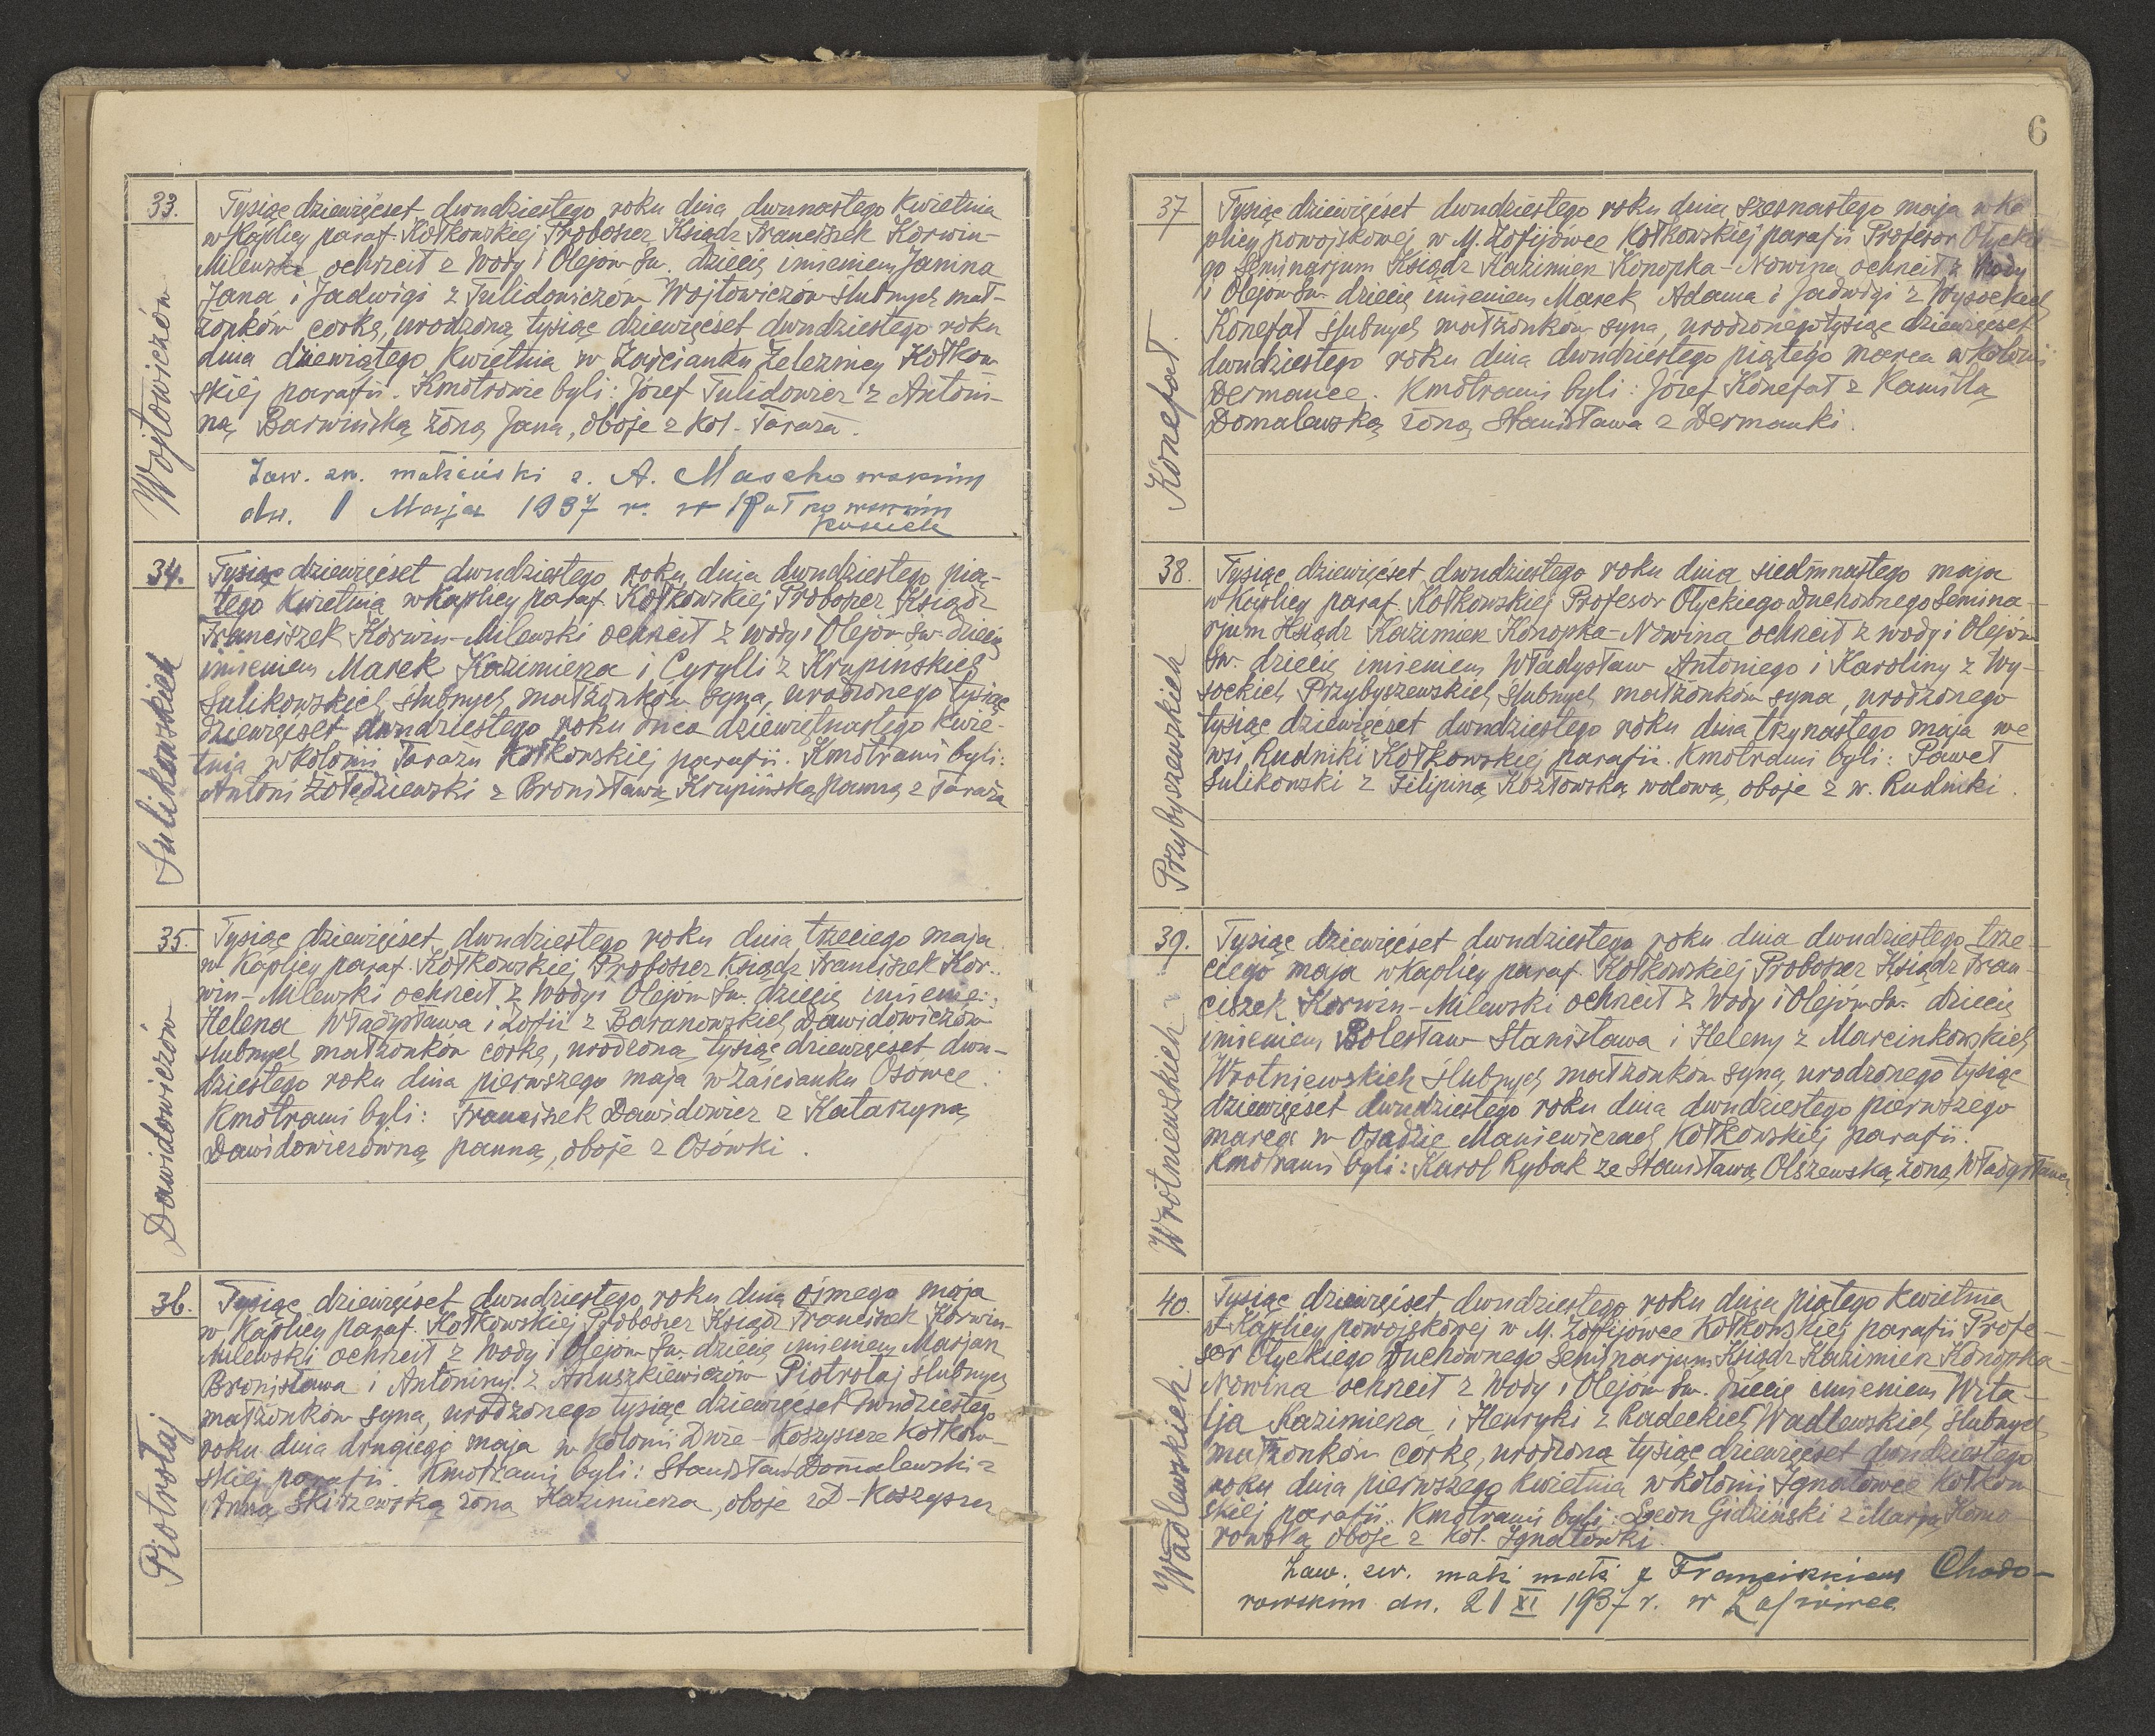 33.
Wojtowiczów
Tysiąc dziewięćset dwudziestego roku dnia dwunastego kwietnia
w Kaplicy paraf. Kołkowskiej Proboszcz Ksiądz Franciszek Korwin-
Milewski ochrzcił z Wody i Olejów Św. dziecię imieniem Janina
Jana i Jadwigi z Tulidowiczów Wojtowiczów ślubnych mał-
żonków córkę, urodzoną tysiąc dziewięćset dwudziestego roku
dnia dziewiątego kwietnia w Zaścianku Żeleźnicy Kołkow-
skiej parafii. Kmotrowie byli: Józef Tulidowicz z Antoni-
ną Barwińską żoną Jana, oboje z Kol. Taraża.
Zaw. zw. małżeński z A. Maschowskim
dn. 1 Maja 1937 r. w
34.
Sulikowskich
Tysiąc dziewięćset dwudziestego roku dnia dwudziestego pią-
tego kwietnia w Kaplicy paraf. Kołkowskiej Proboszcz Ksiądz
Franciszek Korwin-Milewski ochrzcił z wody i Olejów Św. dziecię
imieniem Marek Kazimierza i Cyrylli z Krupińskich
Sulikowskich ślubnych małżonków syna, urodzonego tysiąc
dziewięćset dwudziestego roku dnia dziewiętnastego kwie-
tnia w kolonii Tarażu Kołkowskiej parafii. Kmotrami byli:
Antoni Żołędziewski z Bronisławą Krupińską panną z Taraża
35.
Dawidowiczów
Tysiąc dziewięćset dwudziestego roku dnia trzeciego maja
w Kaplicy paraf. Kołkowskiej Proboszcz Ksiądz Franciszek Kor-
win-Milewski ochrzcił z Wody i Olejów Św. dziecię imienie:
Helena Władysława i Zofii z Baranowskich Dawidowiczów
ślubnych małżonków córkę, urodzoną tysiąc dziewięćset dwu-
dziestego roku dnia pierwszego maja w Zaścianku Osowce.
Kmotrami byli: Franciszek Dawidowicz z Katarzyną
Dawidowiczówną panną, oboje z Osówki.
36.
Piotrołaj
Tysiąc dziewięćset dwudziestego roku dnia ósmego maja
w Kaplicy paraf. Kołkowskiej Proboszcz Ksiądz Franciszek Korwin-
Milewski ochrzcił z Wody i Olejów Św. dziecię imieniem Marjan
Bronisława i Antoniny z Anuszkiewiczów Piotrołaj ślubnych
małżonków syna, urodzonego tysiąc dziewięćset dwudziestego
roku dnia drugiego maja w Kolonii Duże-Koszyszcze Kołkow-
skiej parafii. Kmotrami byli: Stanisław Domalewski z
Anną Skirzewską żoną Kazimierza, oboje z D-Koszyszcz
6
37
Konefał.
Tysiąc dziewięćset dwudziestego roku dnia szesnastego maja w ka
plicy powojskowej w M. Zofijówce Kołkowskiej parafii Profesor Ołyckie-
go Seminarjum Ksiądz Kazimierz Konopka-Nowina ochrzcił z Wody
i Olejów Św. dziecię imieniem Marek Adama i Jadwigi z Wysockich
Konefał ślubnych małżonków syna, urodzonego tysiąc dziewięćset
dwudziestego roku dnia dwudziestego piątego marca w kolonii
Dermance. Kmotrami byli: Józef Konefał z Kamillą
Domalewską żoną Stanisława z Dermanki.
38.
Przybyszewskich
Tysiąc dziewięćset dwudziestego roku dnia siedmnastego maja
w Kaplicy paraf. Kołkowskiej Profesor Ołyckiego Duchownego Semina-
rjum Ksiądz Kazimierz Konopka-Nowina ochrzcił z wody i Olejów
Św. dziecię imieniem Władysław Antoniego i Karoliny z Wy-
sockich Przybyszewskich ślubnych małżonków syna, urodzonego
tysiąc dziewięćset dwudziestego roku dnia trzynastego maja we
wsi Rudniki Kołkowskiej parafii. Kmotrami byli: Paweł
Sulikowski z Filipiną Kozłowską wdową, oboje z w. Rudniki.
39.
Wrotniewskich
Tysiąc dziewięćset dwudziestego roku dnia dwudziestego trze-
ciego maja w Kaplicy paraf. Kołkowskiej Proboszcz Ksiądz Fran-
ciszek Korwin-Milewski ochrzcił z Wody i Olejów Św. dziecię
imieniem Bolesław Stanisława i Heleny z Marcinkowskich
Wrotniewskich ślubnych małżonków syna, urodzonego tysiąc
dziewięćset dwudziestego roku dnia dwudziestego pierwszego
marca w Osadzie Maniewiczach Kołkowskiej parafii.
Kmotrami byli: Karol Rybak ze Stanisławą Olszewską żoną Władysława
40.
Wadlewskich.
Tysiąc dziewięćset dwudziestego roku dnia piątego kwietnia
w Kaplicy powojskowej w M. Zofijówce Kołkowskiej parafii Profe-
sor Ołyckiego Duchownego Seminarjum Ksiądz Kazimierz Konopka-
Nowina ochrzcił z Wody i Olejów Św. dziecię imieniem Wita-
lja Kazimierza i Henryki z Radeckich Wadlewskich ślubnych
małżonków córkę, urodzoną tysiąc dziewięćset dwudziestego
roku dnia pierwszego kwietnia w kolonii Ignatówce Kołkow-
skiej parafii. Kmotrami byli: Leon Gidziński z Marją Komo-
rowską oboje z kol. Ignatówki.
Zaw. zw. małż z Franciszkiem Chodo-
rowskim dn. 21 XI 1937 r. w Zofiówce